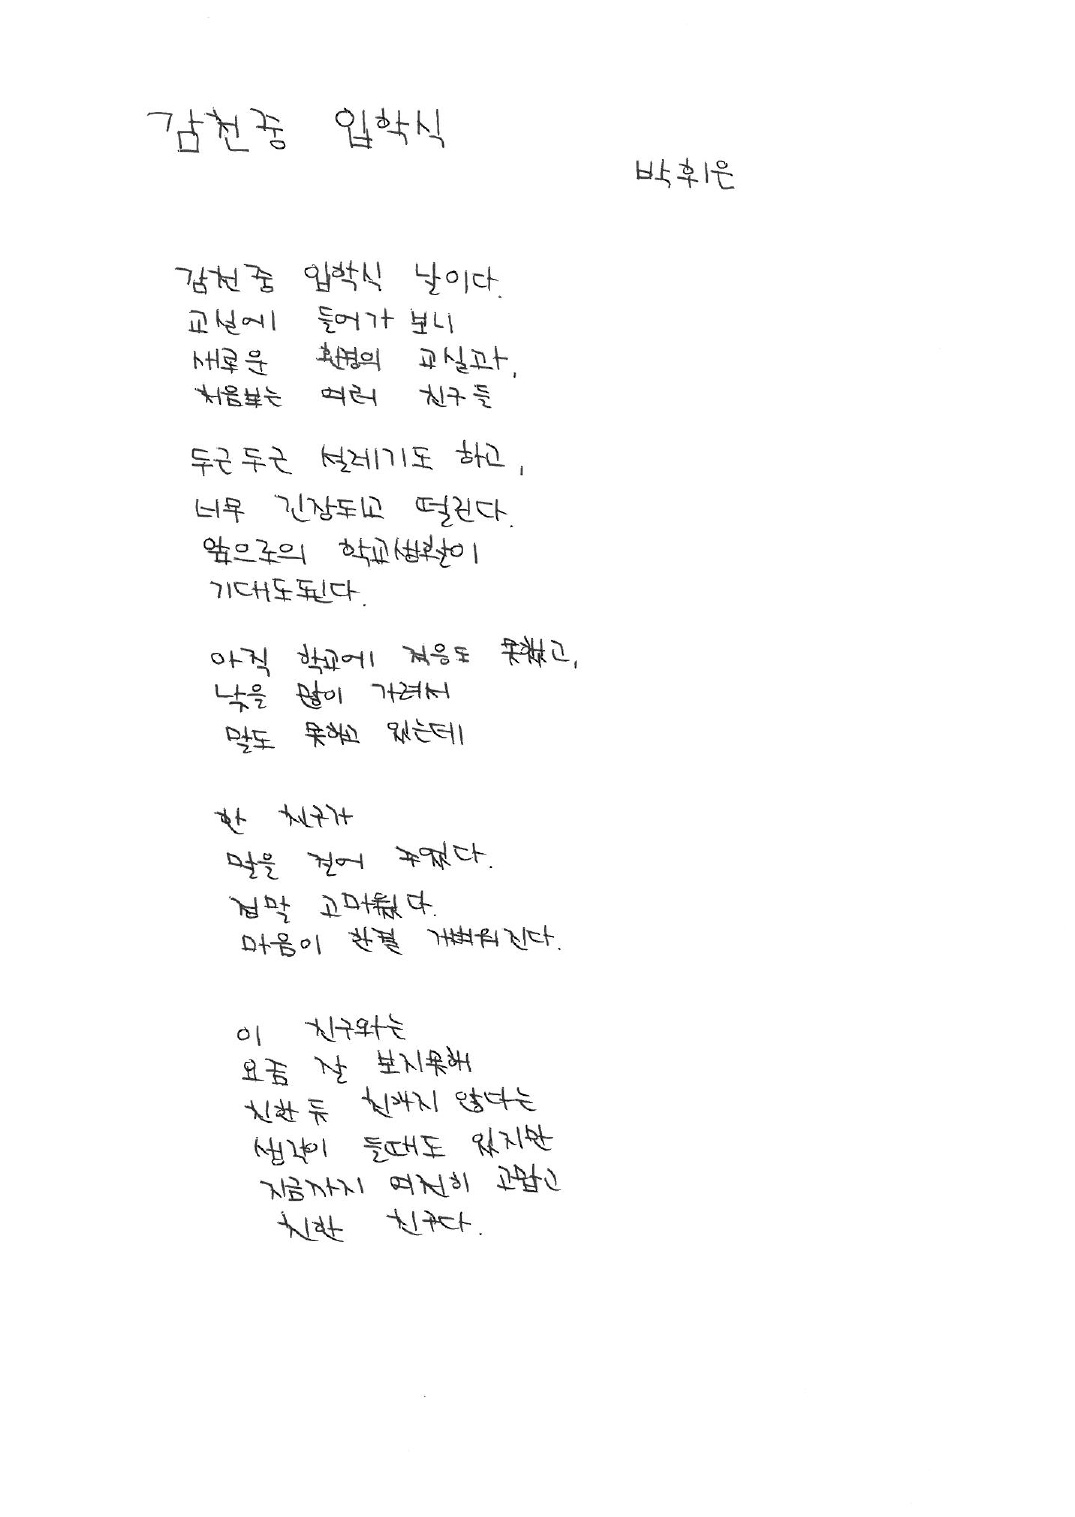 감천중 입학식
박휘은
감천중 입학식 날이다.
교실에 들어가 보니
새로운 환경의 교실과,
처음보는 여러 친구들
두근두근 설레기도 하고,
너무 긴장되고 떨린다.
앞으로의 학교생활이
기대도된다.
아직 학교에 적응도 못했고,
낯을 많이 가려서
말도 못하고 있는데
한 친구가
말을 걸어 주었다.
정말 고마웠다.
마음이 한결 가벼워진다.
이 친구와는
요즘 잘 보지못해
친한 듯 친하지 않다는
생각이 들때도 있지만
지금까지 여전히 고맙고
친한 친구다.